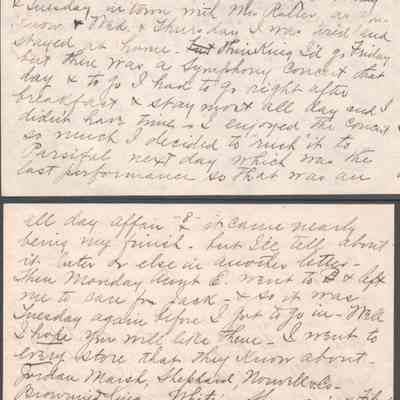 & Tuesday in town with Mrs
know & Wed. & Thursday I was tired and
stayed at home. Thinking I'd go Friday
but there was a Symphony Concert that
day & to go I had to go right after
breakfast & stay most all day and I
didn't have time & I enjoyed the Concert
so much I decided to "rush it to
Parsifal next day which was the
last performance so that was an
all day affair - & it came nearly
being my finish - but I'll tell about
it later or else in another letter -
Then Monday E. went to B & left
me to care for Jack - & so it was
Tuesday again before I got to go in - Well
I hope you will like these - I went to
every store that they know about -
Jordan Marsh, Sheppard Norwell & Co.
Browning King, White